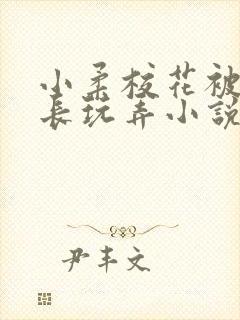 小柔校花被
长玩弄小説
尹丰文